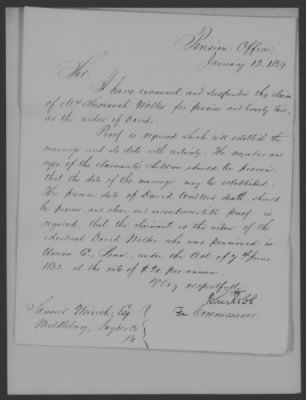 Pension Office
January 12, 1854
Sir,
I have examined and suspended the claim
of Mrs Susannah Walter for pension and bounty land,
as the widow of David.
Proof is required which will establish the
marriage and its date with certainty. The number and
ages of the claimants children should be proven,
that the date of the marriage may be established.
The proven date of David Walters death should
be proven, and clear and incontrovertible proof is
required, that the claimant is the widow of the
identical David Walter who was pensioned in
Union Co, Penn. under the Act of 7th June
1832. at the rate of $20. per annum.
Very respectfully
For Commissioner.
Samuel Weirick, Esq
Middleburg, Snyder Co
Pa